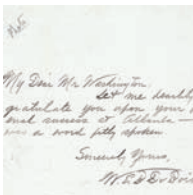 My Dear Mr Washington
Let me heartily
gratulate you upon your
success at Atlanta —
was a word fitly spoken.
Sincerely Yours,
W.E.B. Du Bois